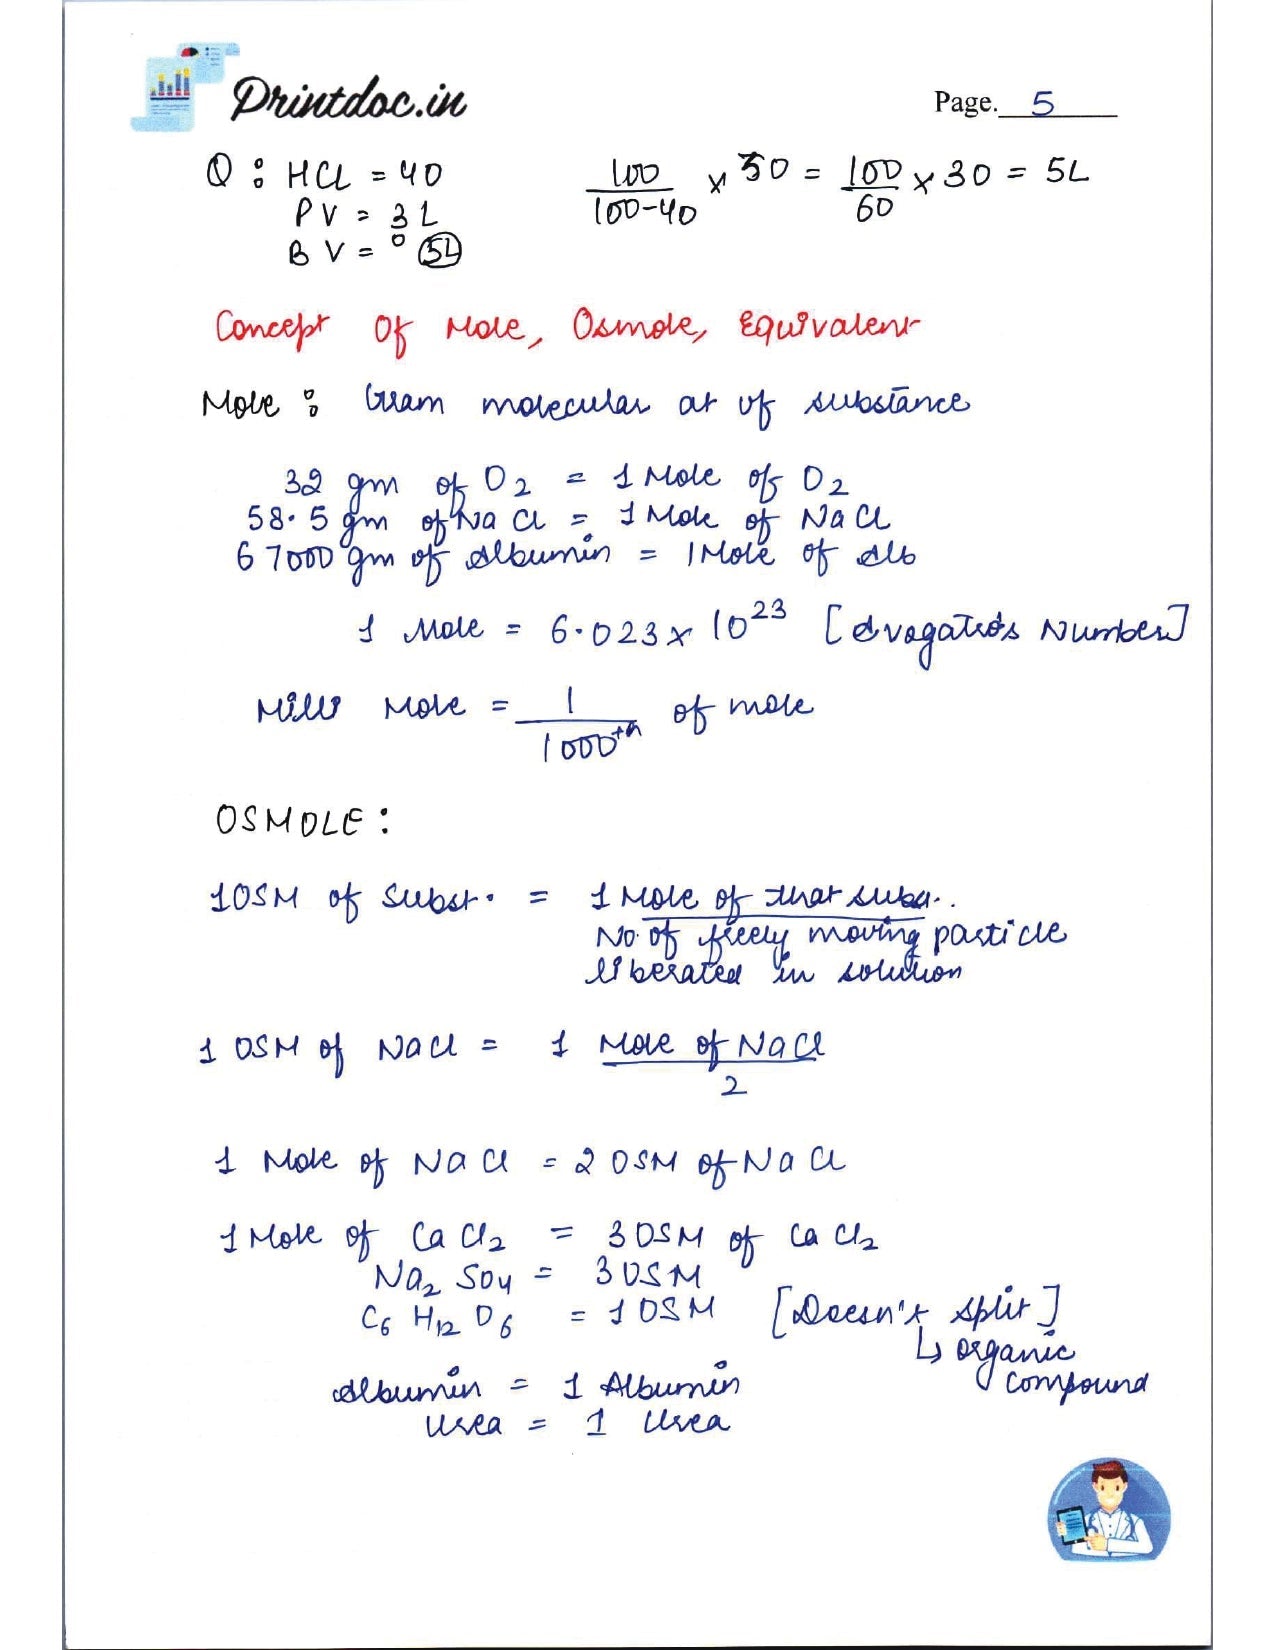 Printdoc.in
Page. 5
Q : HCL = 40
PV = 3L
BV = 5L
100/100-40 x 30 = 100/60 x 30 = 5L
Concept Of Mole, Osmole, Equivalent
Mole : Gram molecular at of substance
32 gm of O2 = 1 Mole of O2
58.5 gm of NaCl = 1 Mole of NaCl
67000 gm of Albumin = 1 Mole of Alb
1 Mole = 6.023 x 10^23 [Avogatro's Number]
Milli Mole = 1/1000th of mole
OSMOLE :
1 OSM of Subst. = 1 Mole of that subs..
No. of freely moving particle
liberated in solution
1 OSM of NaCl = 1 Mole of NaCl
2
1 Mole of NaCl = 2 OSM of NaCl
1 Mole of CaCl2 = 3 OSM of CaCl2
Na2 SO4 = 3 OSM
C6 H12 O6 = 1 OSM [Doesn't split]
↳ organic
compound
Albumin = 1 Albumin
Urea = 1 Urea